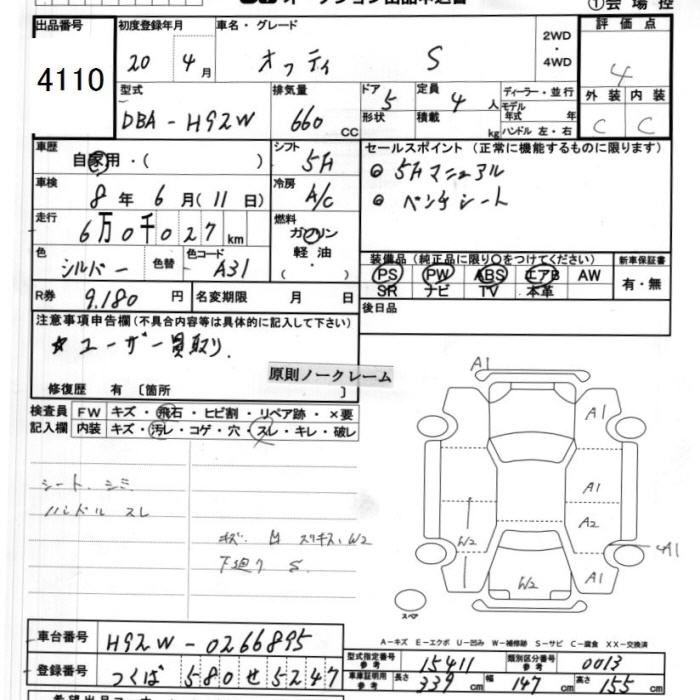 ①会場控
出品番号 4110
初度登録年月 20 年 4月
車名・グレード オッティ S
2WD・4WD
評価点 4
外装 C 内装 C
型式 DBA-H92W
排気量 660 cc
ドア 5 形状
定員 4人 積載 kg
ディーラー・並行
モデル年式 年
ハンドル 左・右
車歴 自家用・( )
シフト 5F
セールスポイント(正常に機能するものに限ります)
◎ 5Fマニュアル
◎ ベンチシート
車検 8年6月(11日)
冷房 A/C
走行 6万0千027km
燃料 ガソリン 軽油 ( ・ )
色 シルバー 色替 色コード A31
装備品(純正品に限り○をつけてください)
PS PW ABS エアB AW
SR ナビ TV 本革
新車保証書 有・無
R券 9,180円 名変期限 月 日
後日品
注意事項申告欄(不具合内容等は具体的に記入して下さい)
☆ユーザー買取り.
原則ノークレーム
修復歴 有〔箇所 〕
検査員記入欄
FW キズ・飛石・ヒビ割・リペア跡・×要
内装 キズ・汚レ・コゲ・穴・スレ・キレ・破レ
シート シミ
ハンドル スレ
キズ. 凹 スリキズ、W2
下廻り S
A1
A1
A1
A2
W2
A1
A1
W2
スペア
A-キズ E-エクボ U-凹み W-補修跡 S-サビ C-腐食 XX-交換済
車台番号 H92W-0266895
登録番号 つくば 580 せ 5247
型式指定番号 参考 15411 類別区分番号 参考 0013
車庫証明用 参考 長さ 339cm 幅 147cm 高さ 155cm